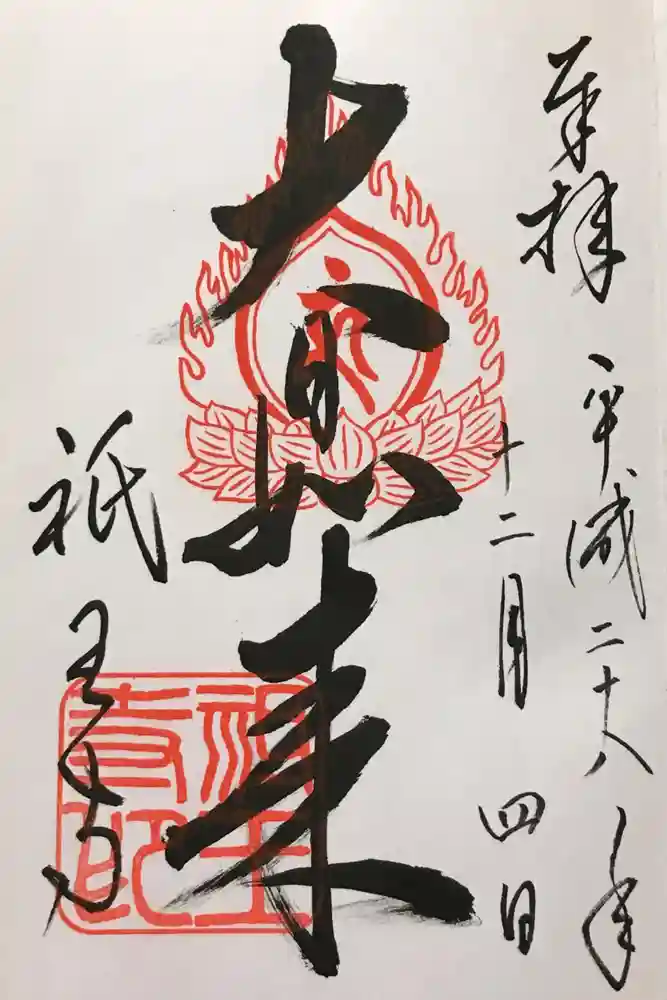 奉拝
平成二十八年
十二月四日
大日如来
祇王寺
祇王
寺印